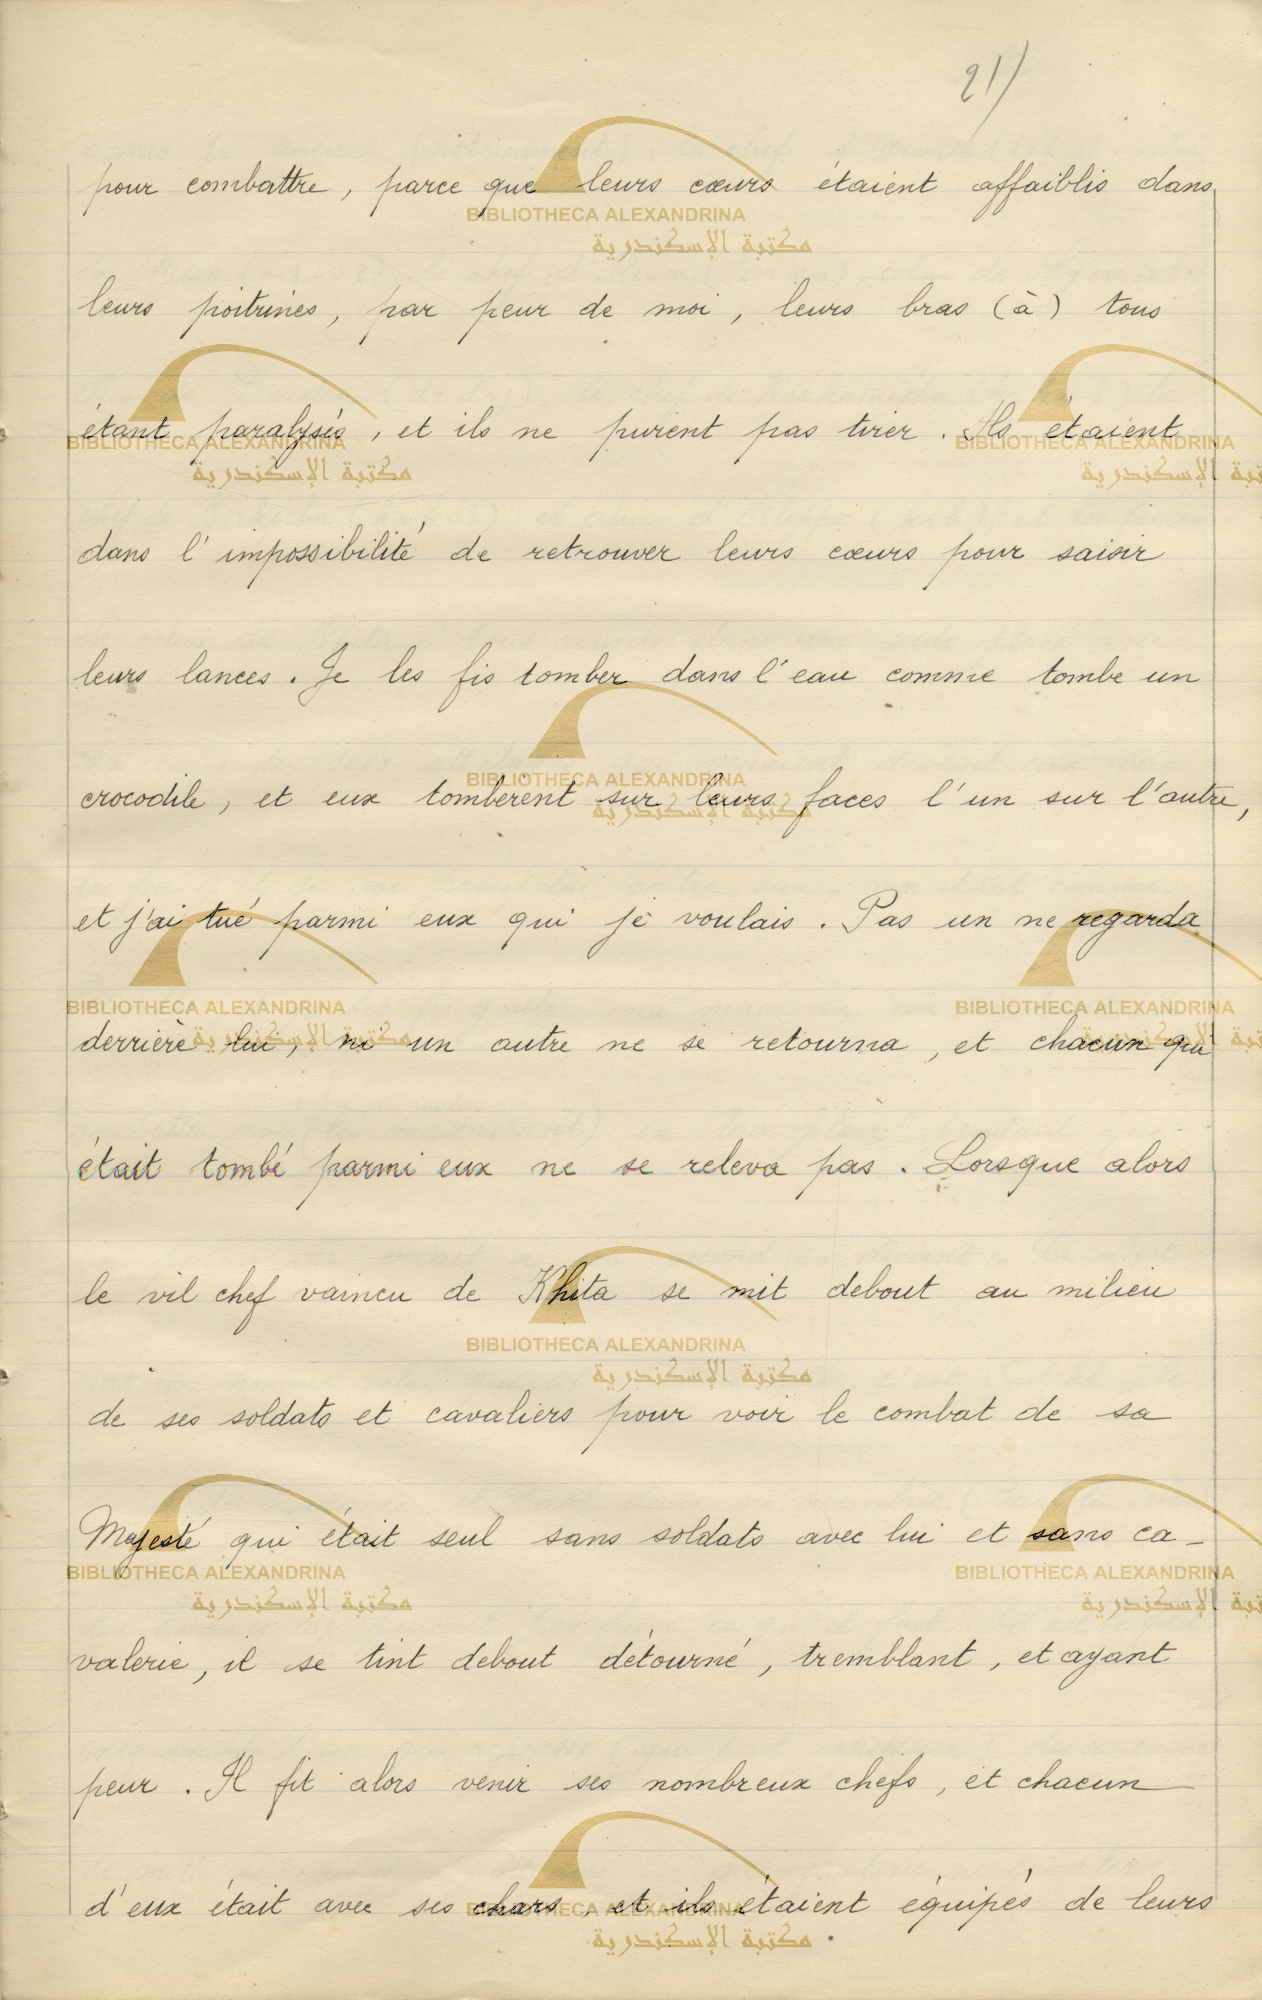 21)
pour combattre, parce que leurs cœurs étaient affaiblis dans
leurs poitrines, par peur de moi, leurs bras (à) tous
étant paralysés, et ils ne purent pas tirer. Ils étaient
dans l'impossibilité de retrouver leurs cœurs pour saisir
leurs lances. Je les fis tomber dans l'eau comme tombe un
crocodile, et eux tombèrent sur leurs faces l'un sur l'autre,
et j'ai tué parmi eux qui je voulais. Pas un ne regarda
derrière lui, ni un autre ne se retourna, et chacun qui
était tombé parmi eux ne se releva pas. Lorsque alors
le vil chef vaincu de Khita se mit debout au milieu
de ses soldats et cavaliers pour voir le combat de sa
Majesté qui était seul sans soldats avec lui et sans ca-
valerie, il se tint debout détourné, tremblant, et ayant
peur. Il fit alors venir ses nombreux chefs, et chacun
d'eux était avec ses chars, et ils étaient équipés de leurs
BIBLIOTHECA ALEXANDRINA
مكتبة الإسكندرية